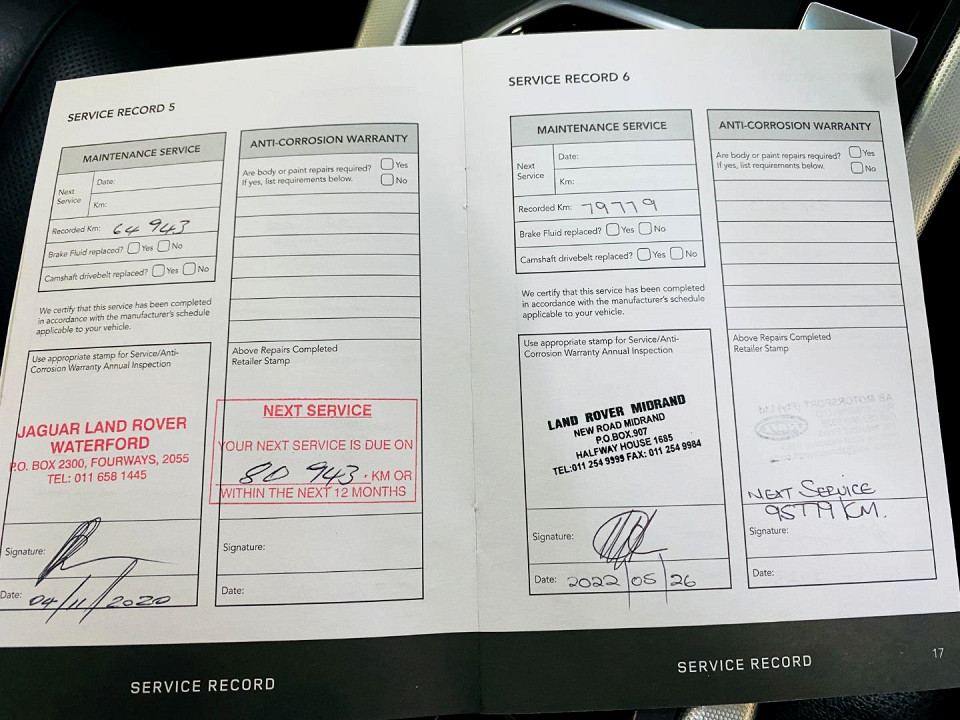 SERVICE RECORD 5
MAINTENANCE SERVICE
Next Service
Date:
Km:
Recorded Km: 64 943
Brake Fluid replaced? Yes No
Camshaft drivebelt replaced? Yes No
We certify that this service has been completed
in accordance with the manufacturer's schedule
applicable to your vehicle.
Use appropriate stamp for Service/Anti-
Corrosion Warranty Annual Inspection
JAGUAR LAND ROVER
WATERFORD
P.O. BOX 2300, FOURWAYS, 2055
TEL: 011 658 1445
Signature:
Date: 04/11/2020
ANTI-CORROSION WARRANTY
Are body or paint repairs required? Yes
If yes, list requirements below. No
Above Repairs Completed
Retailer Stamp
NEXT SERVICE
YOUR NEXT SERVICE IS DUE ON
80 943 · KM OR
WITHIN THE NEXT 12 MONTHS
Signature:
Date:
SERVICE RECORD
SERVICE RECORD 6
MAINTENANCE SERVICE
Next Service
Date:
Km:
Recorded Km: 79779
Brake Fluid replaced? Yes No
Camshaft drivebelt replaced? Yes No
We certify that this service has been completed
in accordance with the manufacturer's schedule
applicable to your vehicle.
Use appropriate stamp for Service/Anti-
Corrosion Warranty Annual Inspection
LAND ROVER MIDRAND
NEW ROAD MIDRAND
P.O.BOX.907
HALFWAY HOUSE 1685
TEL:011 254 9999 FAX: 011 254 9984
Signature:
Date: 2022/05/26
ANTI-CORROSION WARRANTY
Are body or paint repairs required? Yes
If yes, list requirements below. No
Above Repairs Completed
Retailer Stamp
NEXT SERVICE
95779 KM.
Signature:
Date:
SERVICE RECORD
17